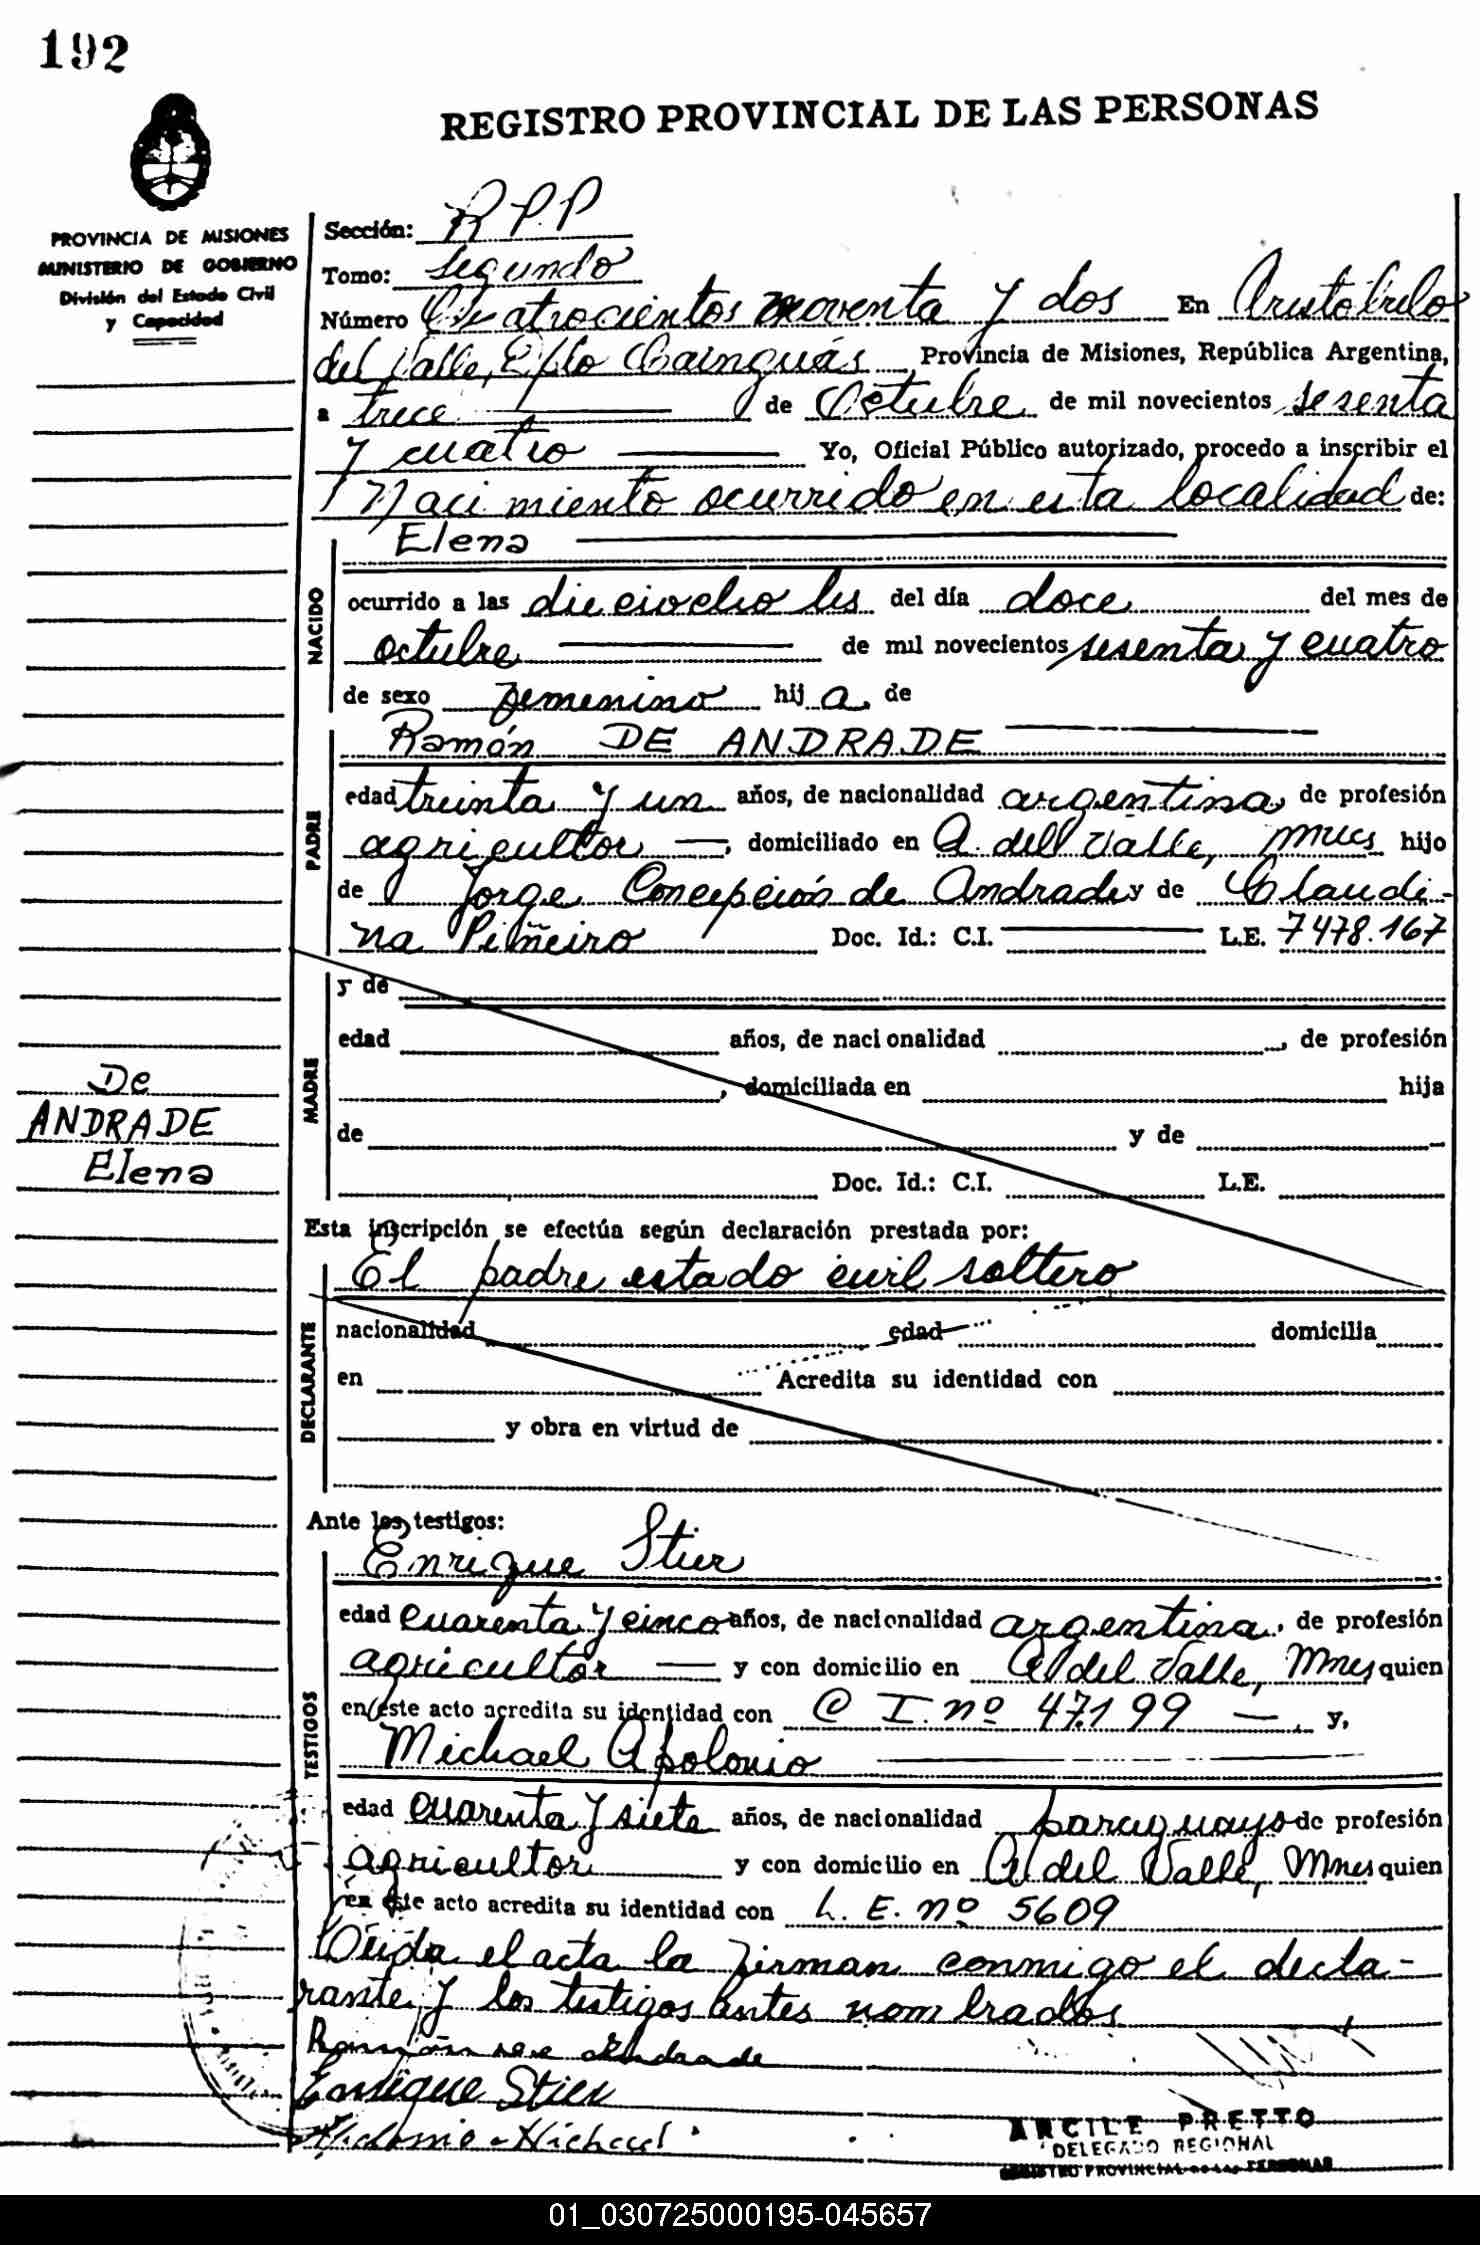 192
REGISTRO PROVINCIAL DE LAS PERSONAS
PROVINCIA DE MISIONES
MINISTERIO DE GOBIERNO
División del Estado Civil
y Capacidad
Sección: R P P
Tomo: segundo
Número Cuatrocientos noventa y dos En Aristóbulo
del Valle, Dpto Cainguás Provincia de Misiones, República Argentina,
a trece de Octubre de mil novecientos sesenta
y cuatro Yo, Oficial Público autorizado, procedo a inscribir el
Nacimiento ocurrido en esta localidad de:
Elena
NACIDO
ocurrido a las dieciocho hs del día doce del mes de
octubre de mil novecientos sesenta y cuatro
de sexo femenino hij a. de
Ramón DE ANDRADE
PADRE
edad treinta y un años, de nacionalidad argentina, de profesión
agricultor —, domiciliado en A. del Valle, Mnes hijo
de Jorge Concepción de Andrade y de Claudi-
na Piñeiro Doc. Id.: C.I. L.E. 7478.167
MADRE
y de
edad años, de nacionalidad , de profesión
, domiciliada en hija
de y de
Doc. Id.: C.I. L.E.
De
ANDRADE
Elena
Esta inscripción se efectúa según declaración prestada por:
El padre estado civil soltero
DECLARANTE
nacionalidad edad domicilia
en Acredita su identidad con
y obra en virtud de
Ante los testigos:
Enrique Stier
TESTIGOS
edad cuarenta y cinco años, de nacionalidad argentina, de profesión
agricultor — y con domicilio en A del Valle, Mnes quien
en este acto acredita su identidad con C I. nº 47.199 —, y,
Michael Apolonio
edad cuarenta y siete años, de nacionalidad paraguayo de profesión
agricultor y con domicilio en A del Valle, Mnes quien
en este acto acredita su identidad con L. E. nº 5609
Oída el acta la firman conmigo el decla-
rante y los testigos antes nombrados
Ramón de Andrade
Enrique Stier
ARCILE PRETTO
DELEGADO REGIONAL
REGISTRO PROVINCIAL DE LAS PERSONAS
01_030725000195-045657